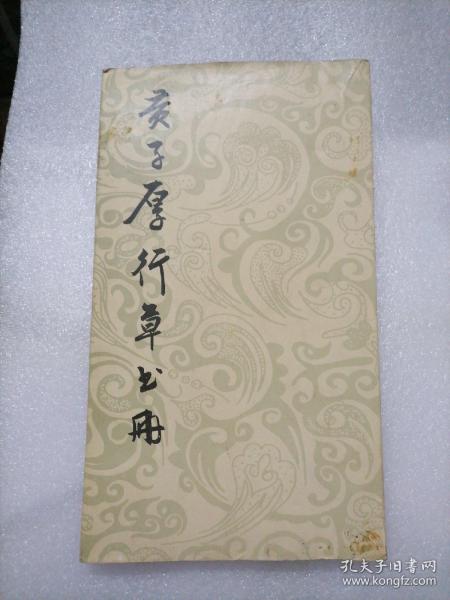 黄子厚行草书册
孔夫子旧书网
www.kongfz.com